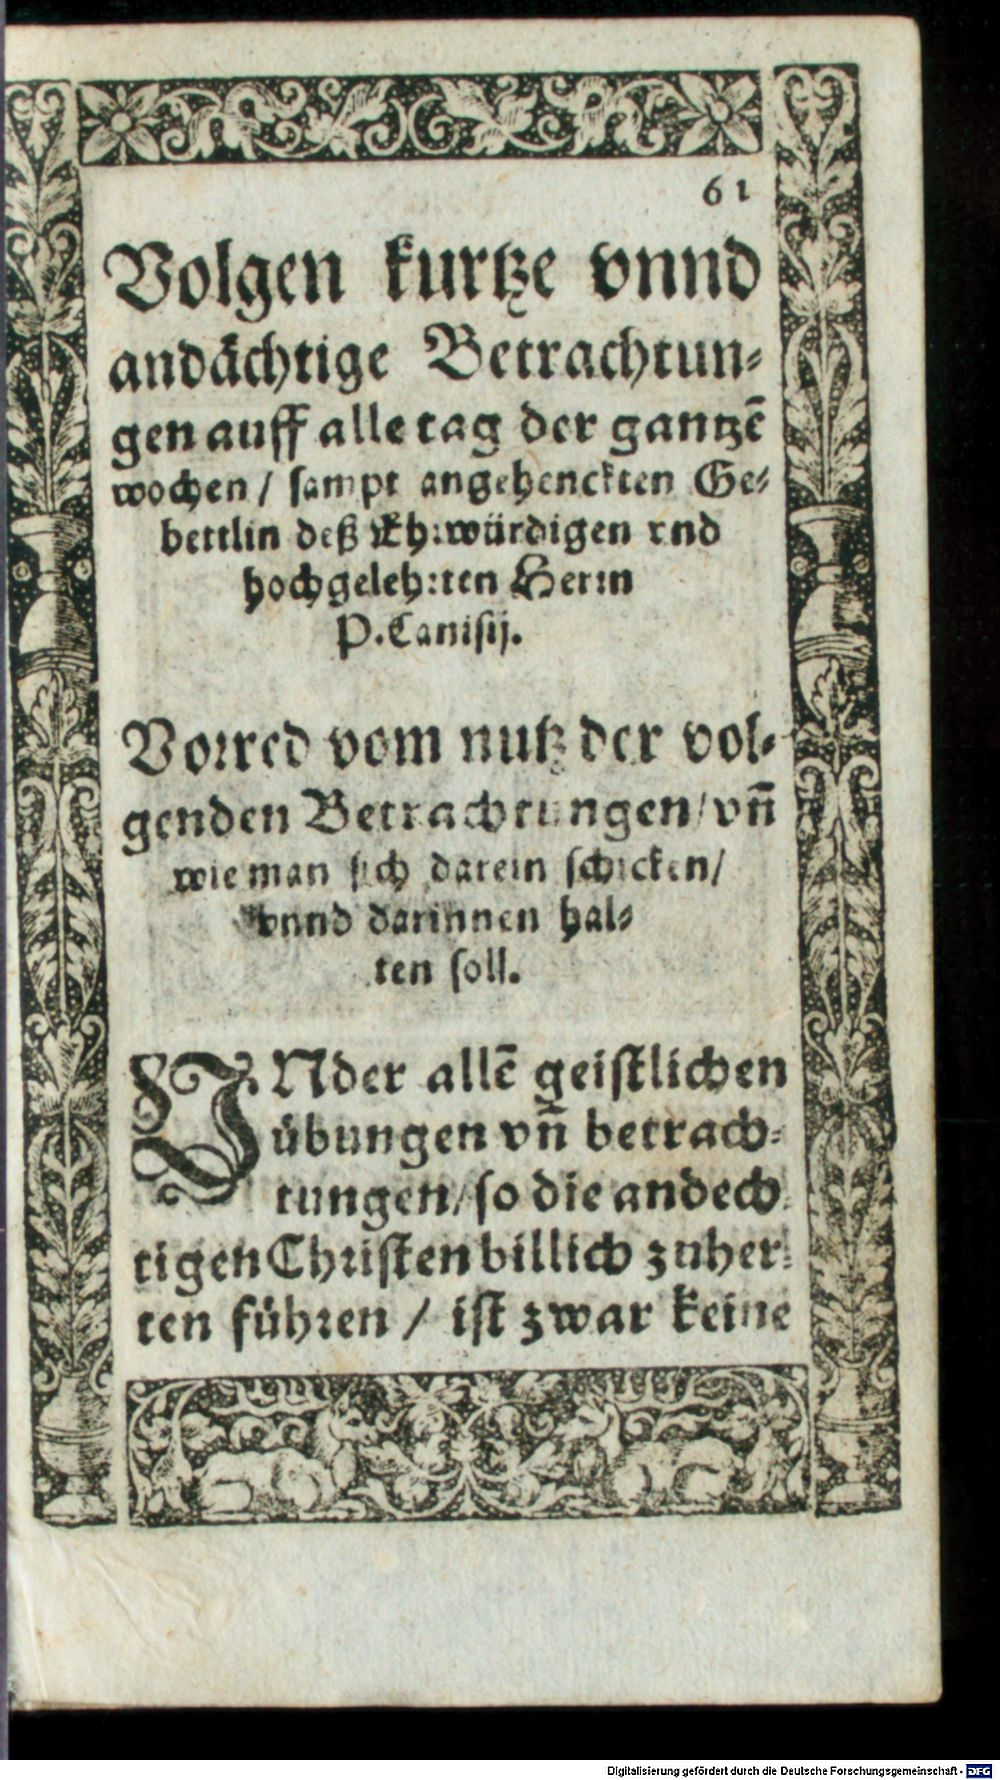 61
Volgen kurtze vnnd
andächtige Betrachtun⸗
gen auff alle tag der gantzē
wochen / sampt angehenckten Ge⸗
bettlin deß Ehrwürdigen vnd
hochgelehrten Herrn
P. Canisij.
Vorred vom nutz der vol⸗
genden Betrachtungen / vn̄
wie man sich darein schicken /
vnnd darinnen hal⸗
ten soll.
VNder allē geistlichen
übungen vn̄ betrach⸗
tungen / so die andech⸗
tigen Christen billich zuher⸗
ten führen / ist zwar keine
Digitalisierung gefördert durch die Deutsche Forschungsgemeinschaft - DFG